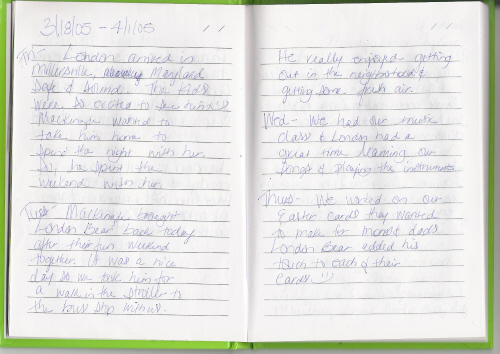 3/18/05 - 4/1/05
Fri - London arrived in
Millersville, Maryland
Safe & Sound. The kids
were so excited to see him!
Mackenzie wanted to
take him home to
spend the night with her.
So, he spent the
weekend with her.
Tues - Mackenzie brought
London Bear back today
after their fun weekend
together. It was a nice
day so we took him for
a walk in the stroller to
the bus stop with us.
He really enjoyed getting
out in the neighborhood &
getting some fresh air.
Wed - We had our music
class & London had a
great time learning our
songs & playing the instruments.
Thurs - We worked on our
Easter cards they wanted
to make for mom & dads
London Bear added his
touch to each of their
cards!!!